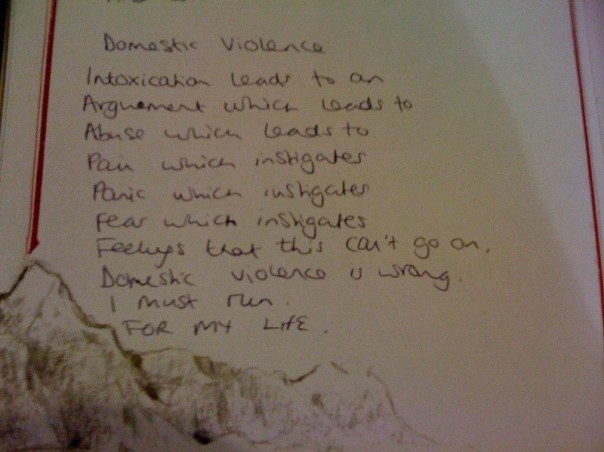 Domestic Violence
Intoxication leads to an
Arguement which leads to
Abuse which leads to
Pain which instigates
Panic which instigates
Fear which instigates
Feelings that this can't go on.
Domestic violence is wrong.
I must run.
FOR MY LIFE.